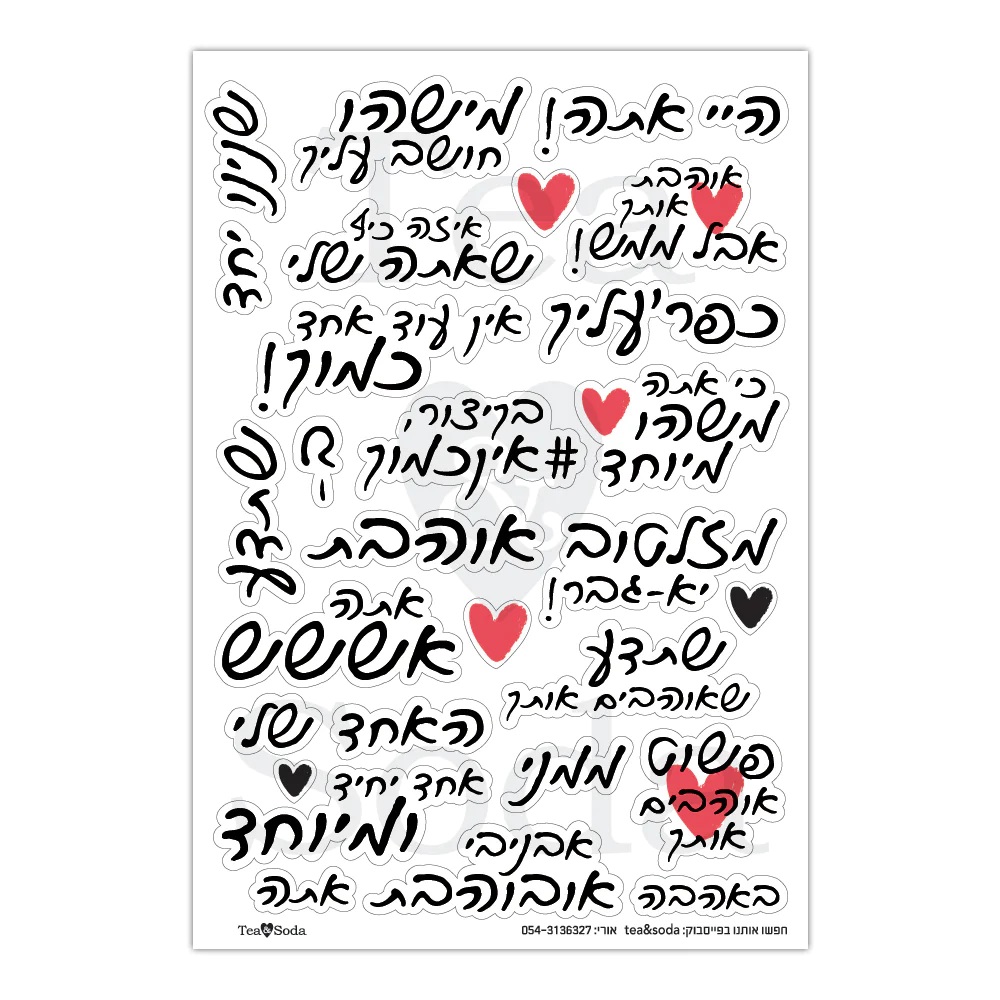 היי אתה!
מישהו
חושב עליך
שנינו יחד
אוהבת
אותך
אבל ממש!
איזה כיף
שאתה שלי
כפרי'עליך
אין עוד אחד
כמוך!
כי אתה
משהו
מיוחד
בקיצור,
#אינכמוך
שתדע
מזלטוב
יא-גבר!
אוהבת
אתה
אשששש
שתדע
שאוהבים אותך
האחד שלי
פשוט
אוהבים
אותך
ממני
אחד יחיד
ומיוחד
אבניבי
אובוהבת
באהבה
אתה
חפשו אותנו בפייסבוק: tea&soda אורי: 054-3136327
Tea & Soda
Tea
&
Soda